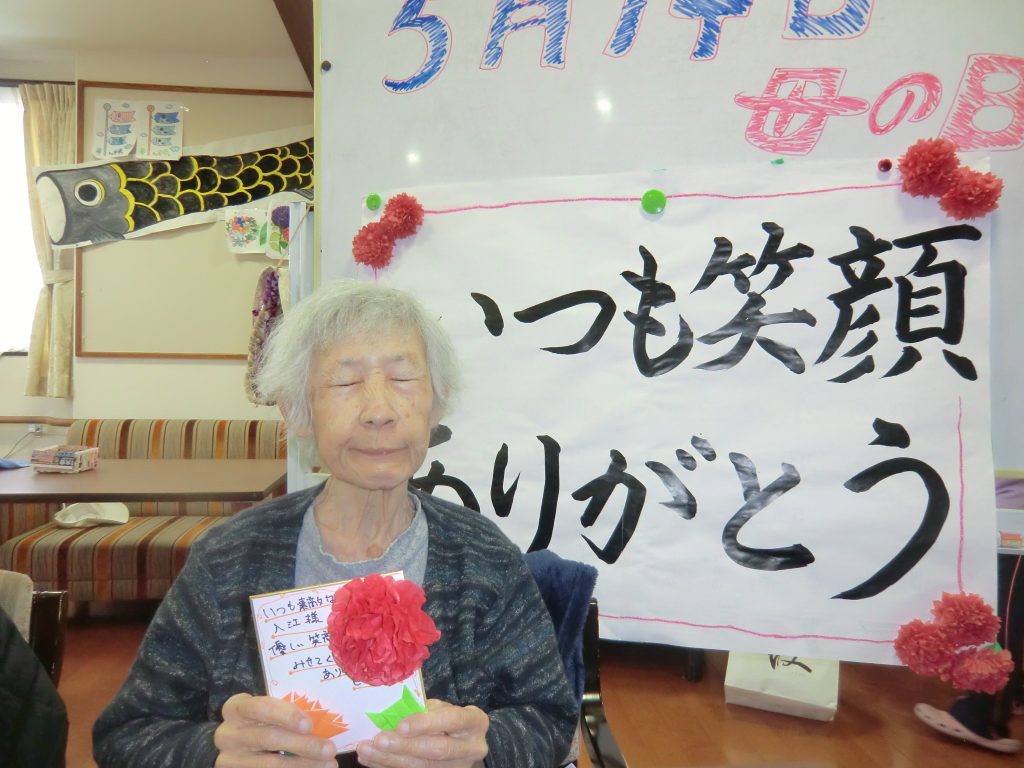 5月14日
母の日
いつも笑顔
ありがとう
いつも素敵な
入江様
優しい笑
みせてく
あり